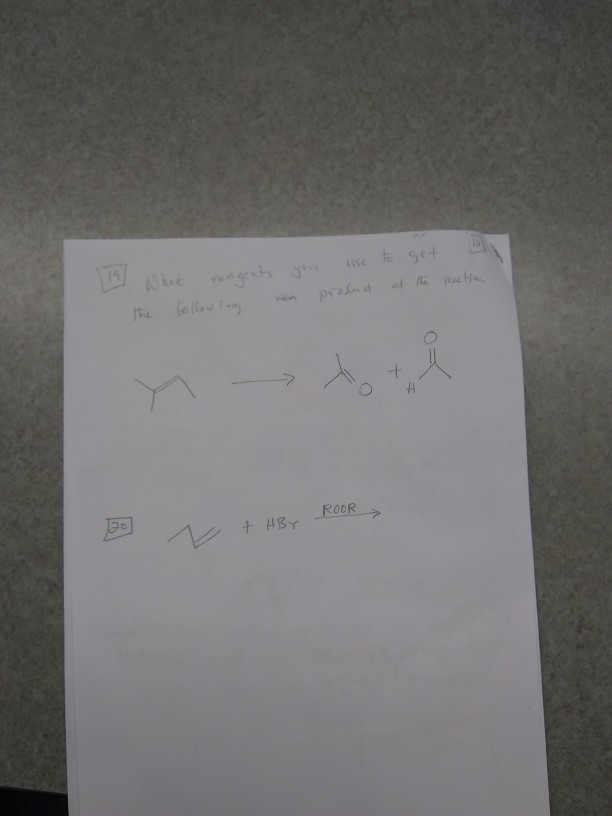 12
19 What reagents you use to get
the following men product of the reaction
O
+
O
H
20 + HBr ROOR